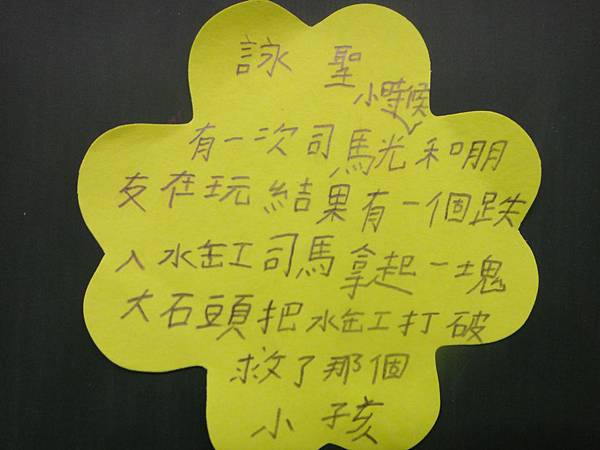 詠聖
小時候
有一次司馬光和朋
友在玩結果有一個跌
入水缸司馬拿起一塊
大石頭把水缸打破
救了那個
小孩